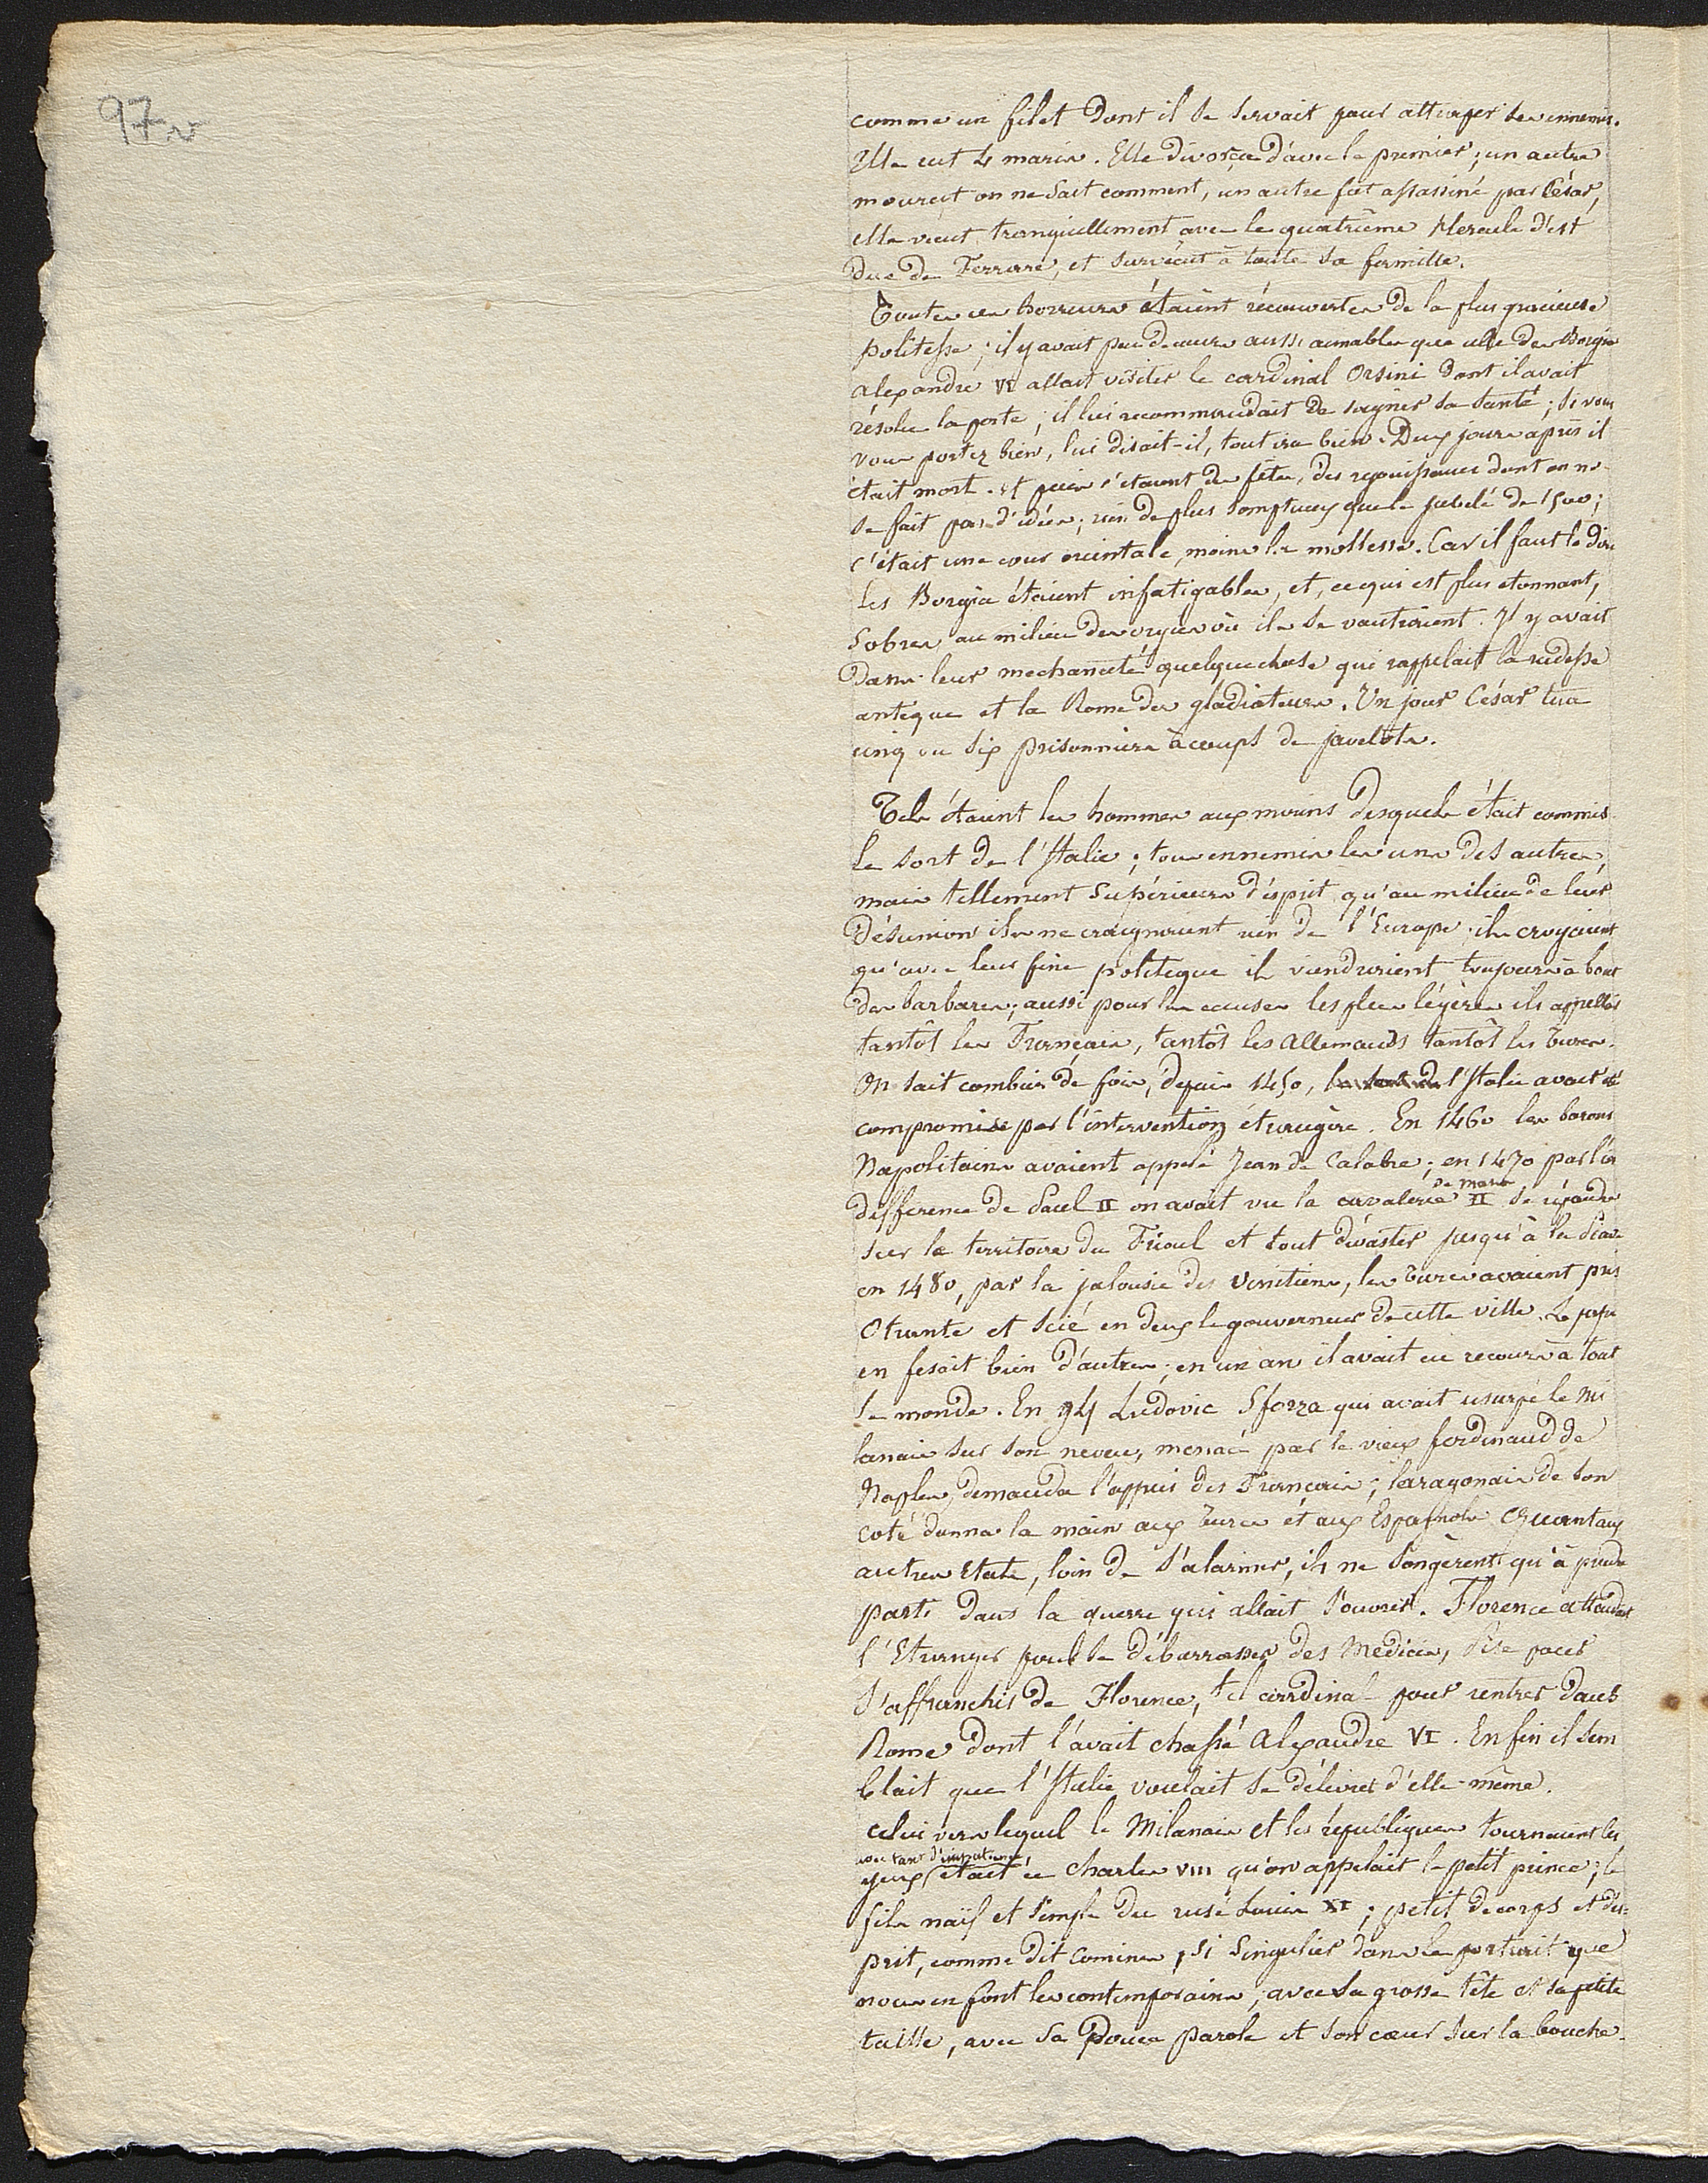 97 v
comme un filet dont il se servait pour attraper ses ennemis.
Elle eut 4 maris. Elle divorça d'avec le premier; un autre
mourut on ne sait comment, un autre fut assassiné par César,
elle vécut tranquillement avec le quatrième Hercule d'est
duc de Ferrare, et survécut à toute sa famille.
Toutes ces horreurs étaient récouvertes de la plus gracieuse
politesse; il y avait peu de cours aussi aimables que celle des Borgia
Alexandre VI allait visiter le cardinal Orsini dont il avait
résolu la perte; il lui recommandait de soigner sa santé; si vous
vous portez bien, lui disait-il, tout ira bien. Deux jours après il
était mort. et puis c'étaient des fêtes, des rejouissances dont on ne
se fait pas d'idées; rien de plus somptueux que le jubilé de 1500;
c'était une cour orientale, moins la mollesse. Car il faut le dire
les Borgia étaient infatigables, et, ce qui est plus etonnant,
sobres au milieu des orgies où ils se vautraient. Il y avait
dans leur mechanceté quelque chose qui rappelait la rudesse
antique et la Rome des gladiateurs. Un jour César tua
cinq ou six prisonniers à coups de javelots.
Tels étaient les hommes aux mains desquels était commis
le sort de l'Italie; tous ennemis les uns des autres,
mais tellement supérieurs d'esprit qu'au milieu de leur
désunion ils ne craignaient rien de l'Europe; ils croyaient
qu'avec leur fine politique ils viendraient toujours à bout
des barbares; aussi pour les causes les plus légères ils appellés
tantôt les Français, tantôt les Allemands tantôt les Turcs.
On sait combien de fois, depuis 1450, le sort de l'Italie avait été
compromise par l'intervention étrangère. En 1460 les barons
Napolitains avaient appelé Jean de Calabre; en 1470 par l'in
difference de Paul II on avait vu la cavalerie II se répandre
de Maho
sur le territoire du Frioul et tout dévaster jusqu'à la Piave
en 1480, par la jalousie des Venitiens, les Turcs avaient pris
Otrante et scié en deux le gouverneur de cette ville. Le pape
en fesait bien d'autres; en un an il avait eu recours à tout
le monde. En 94 Ludovic Sforza qui avait usurpé le Mi
lanais sur son neveu, menacé par le vieux ferdinand de
Naples, demanda l'appui des Français; laragonais de son
coté donna la main aux Turcs et aux Espagnols Quant aux
autres Etats, loin de s'alarmer, ils ne songèrent qu'à prendre
parti dans la guerre qui allait s'ouvrir. Florence attendait
l'Etranger pour se débarrasser des Médicis, Pise pour
s'affranchir de Florence, tel cardinal pour rentrer dans
Rome dont l'avait chassé Alexandre VI. Enfin il sem
blait que l'Italie voulait se délivrer d'elle-même.
celui vers lequel le Milanais et les républiques tournaient les
avec tant d'impatience,
yeux était ce Charles VIII qu'on appelait le petit prince; le
fils naïf et simple du rusé Louis XI; petit de corps et d'es=
prit, comme dit Comines, si singulier dans le portrait que
nous en font les contemporains; avec sa grosse tête et sa petite
taille, avec sa douce parole et son cœur sur la bouche.